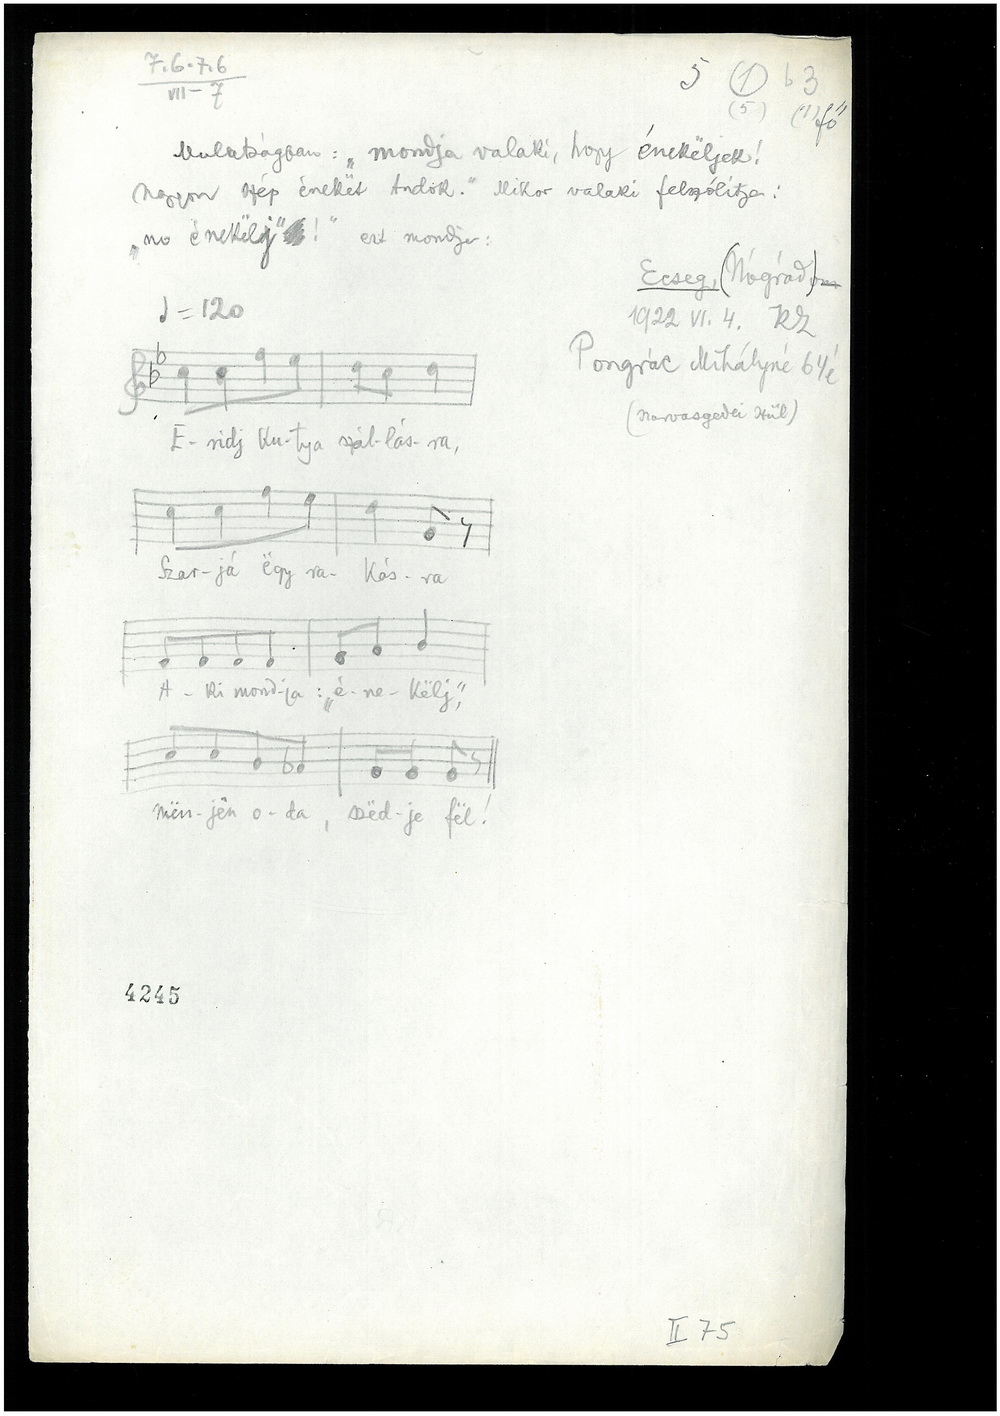 7.6.7.6
VII – 7
5 (1) b3
(5) (1) fő
Mulatságban: „mondja valaki, hogy énekëljek!
Nagyon szép énekët tudok." Mikor valaki felszólítja:
„no énekëlj"!" ezt mondja:
Ecseg, (Nógrád)
1922 VI. 4.
Pongrác Mihályné 64 é
♩ = 120
E-ridj ku-tya szál-lás-ra,
Szar-já ëgy ra- kás-ra
A-ki mond-ja: „é-ne-këlj",
mën-jën o-da, szëd-je fël!
4245
II 75